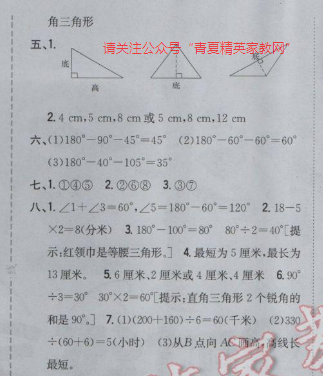 角三角形
请关注公众号"青夏精英家教网"
五、1.
底
高
底
2. 4 cm,5 cm,8 cm 或 5 cm,8 cm,12 cm
六、(1)180°-90°-45°=45° (2)180°-60°-60°=60°
(3)180°-40°-105°=35°
七、1. ①④⑤ 2. ②⑥⑧ 3. ③⑦
八、1. ∠1+∠3=60°,∠5=180°-60°=120° 2. 18-5
×2=8(分米) 3. 180°-100°=80° 80°÷2=40°[提
示:红领巾是等腰三角形。] 4. 最短为 5 厘米,最长为
13 厘米。 5. 6 厘米、2 厘米或 4 厘米、4 厘米 6. 90°
÷3=30° 30°×2=60°[提示:直角三角形 2 个锐角的
和是 90°。] 7. (1)(200+160)÷6=60(千米) (2)330
÷(60+6)=5(小时) (3)从 B 点向 AC 画高,高线长
最短。